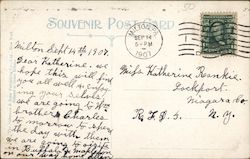 SOUVENIR POSTCARD
Milton Sept 14th 1907.
Dear Katherine. we
hope this will find
you all well & enjoy
ing your
we are going to
brothers Charles
to morrow to spend
the day with them
we are
in Buffalo
on our way home
SEP 14
5-PM
1907
Miss Katherine Rankie
Lockport
Niagara Co
R.F.D. 5. N.Y.